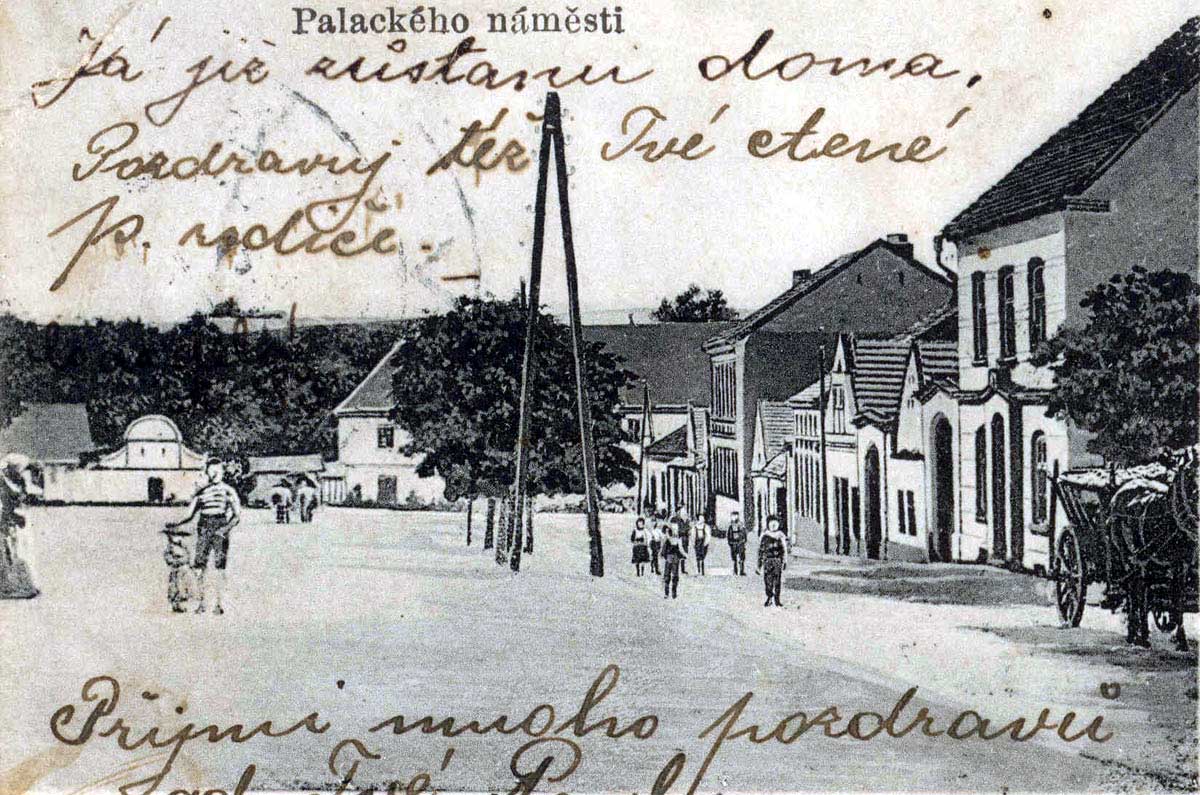 Palackého náměsti
Já již zůstanu doma,
Pozdravuj též Tvé ctené
p. rodiče.
Přijmi mnoho pozdravů
Tvé